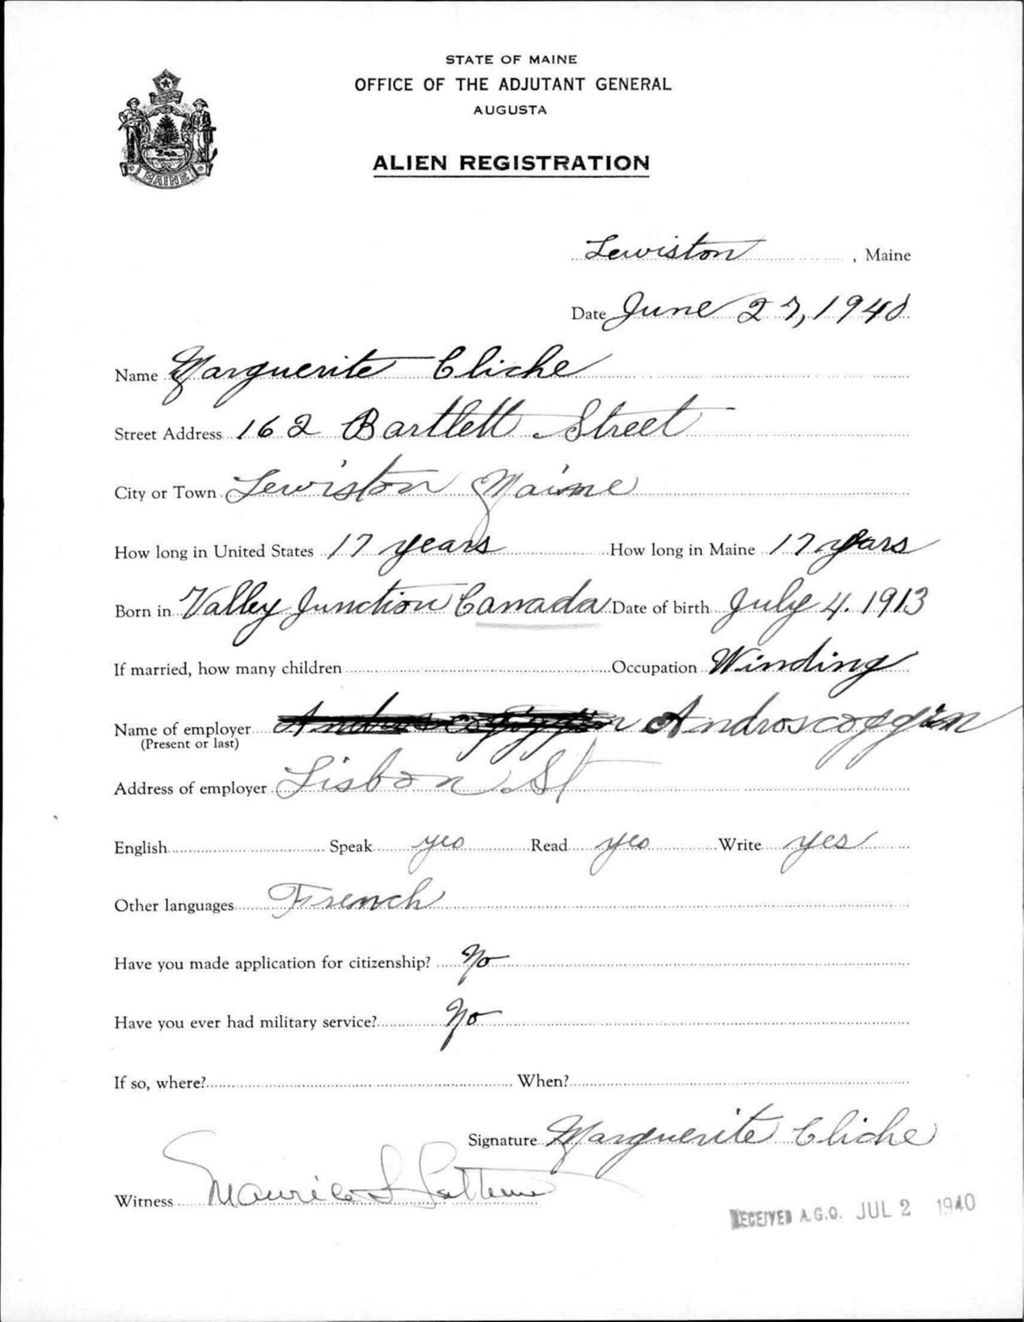 STATE OF MAINE
OFFICE OF THE ADJUTANT GENERAL
AUGUSTA
ALIEN REGISTRATION
MAINE
Lewiston, Maine
Date June 27, 1940
Name Marguerite Cliche
Street Address 162 Bartlett Street
City or Town Lewiston Maine
How long in United States 17 years How long in Maine 17 years
Born in Valley Junction Canada Date of birth July 4. 1913
If married, how many children Occupation Winding
Name of employer Androscoggin Androscoggin
(Present or last)
Address of employer Lisbon St
English Speak yes Read yes Write yes
Other languages French
Have you made application for citizenship? No
Have you ever had military service? No
If so, where? When?
Signature Marguerite Cliche
Witness
RECEIVED A.G.O. JUL 2 1940